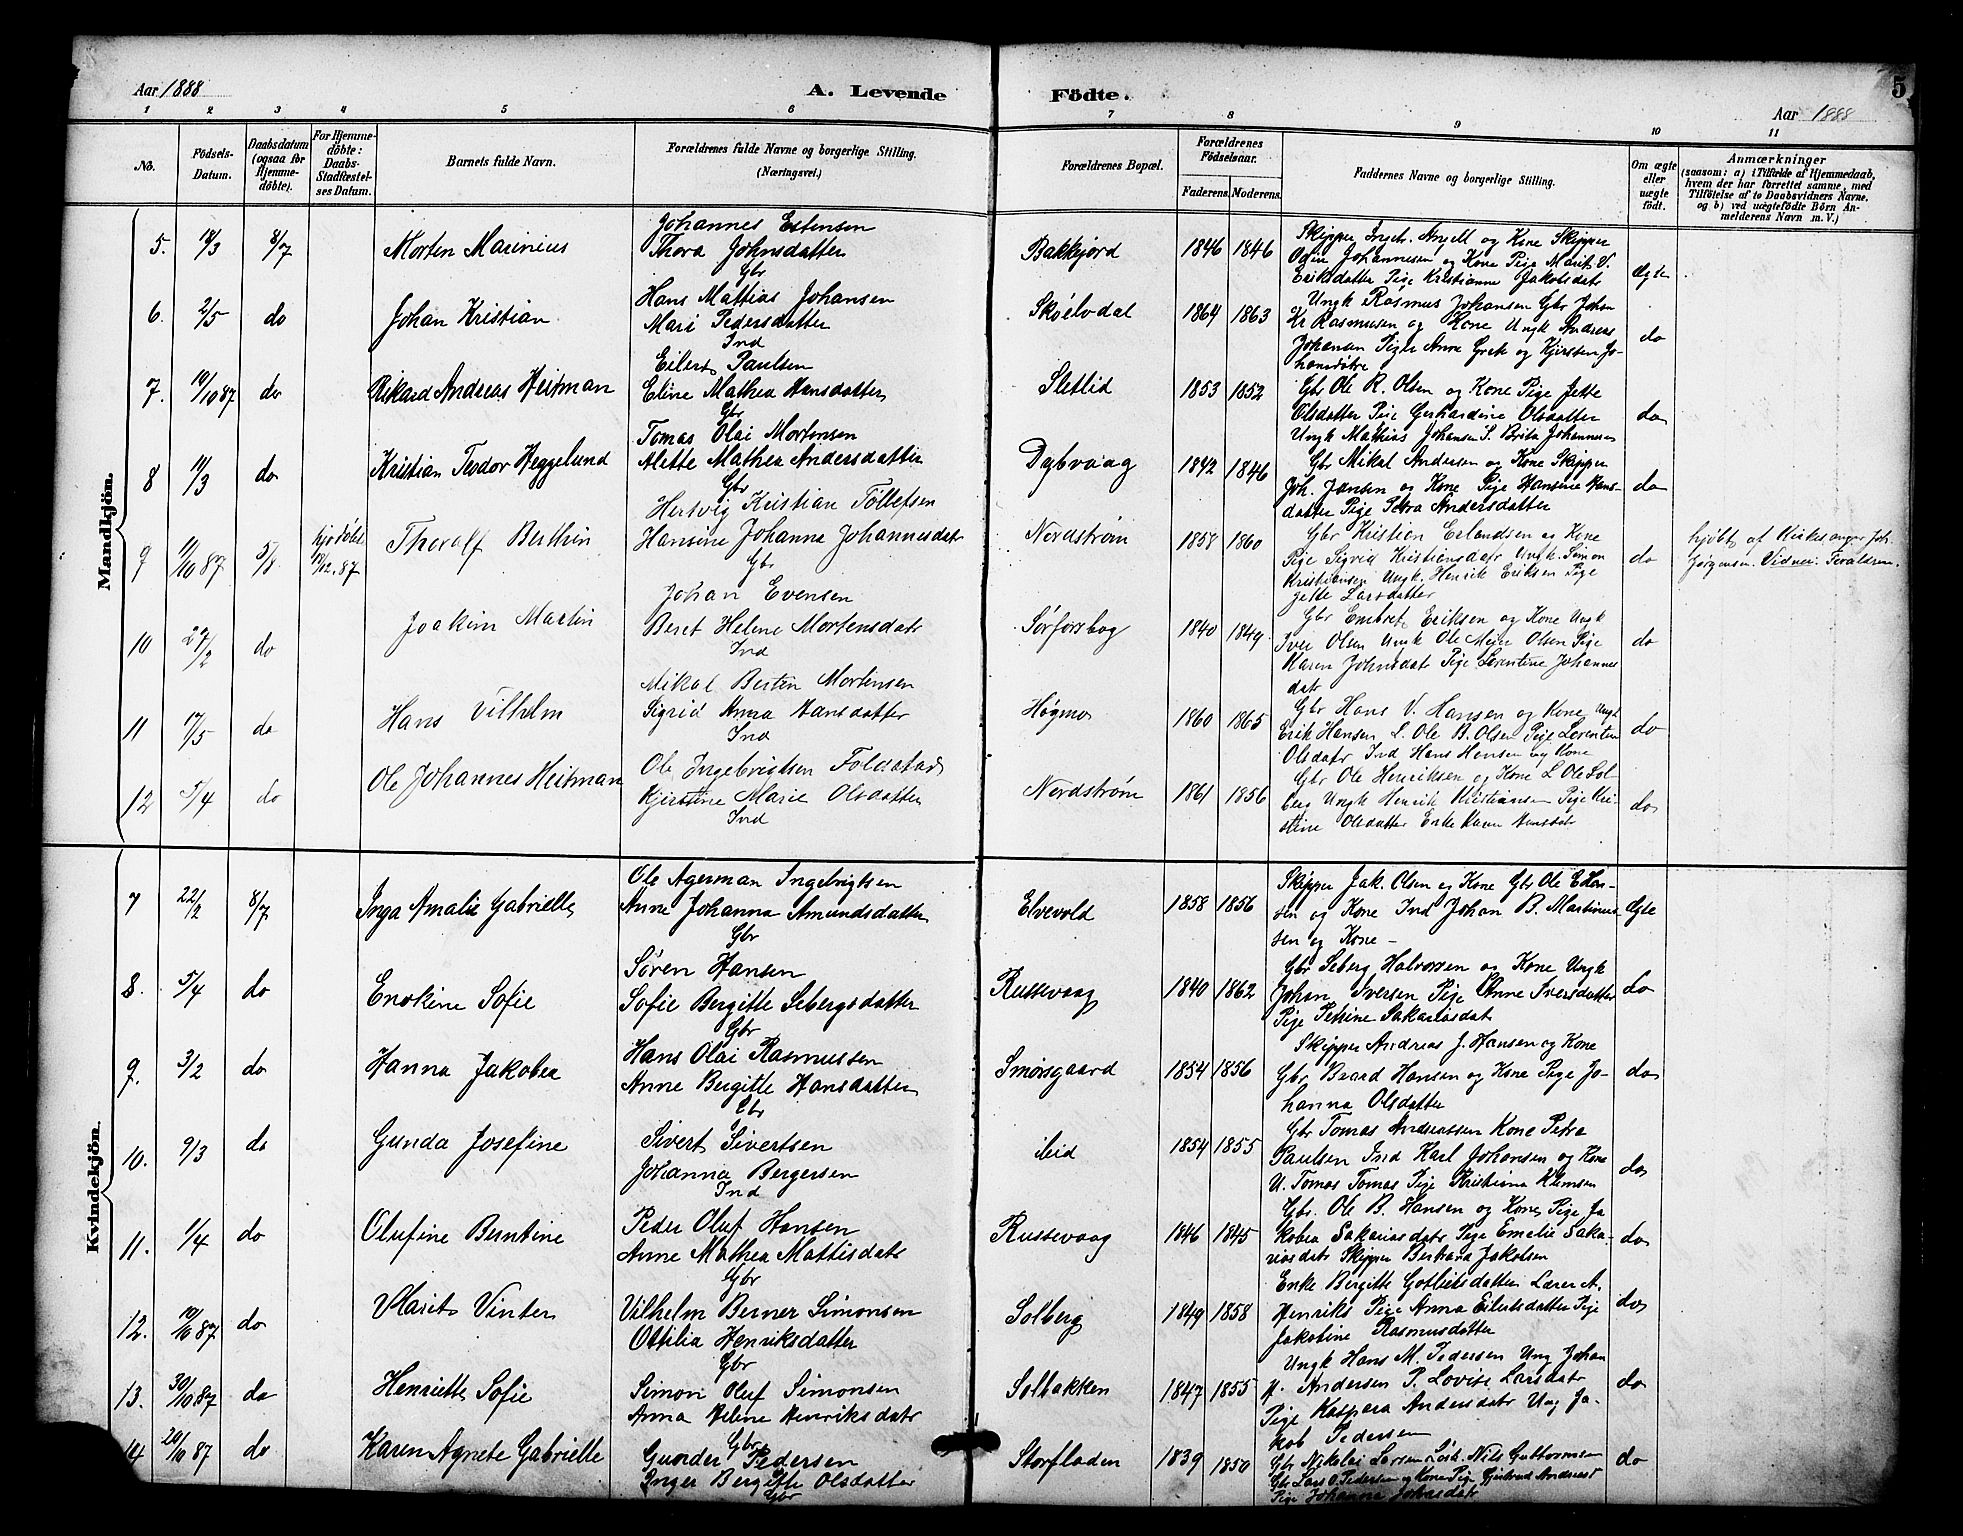 Aar 1888
A. Levende
Födte.
Aar 1888
5
1 2 3 4 5 6 7 8 9 10 11
No.
Födsels-
Datum.
Daabsdatum
(ogsaa for
Hjemme-
döbte).
For Hjemme-
döbte:
Daabs-
Stadfæstel-
ses Datum.
Barnets fulde Navn.
Forældrenes fulde Navne og borgerlige Stilling.
(Næringsvei.)
Forældrenes Bopæl.
Forældrenes
Födselsaar.
Faderens. Moderens.
Faddernes Navne og borgerlige Stilling.
Om ægte
eller
uægte
födt.
Anmærkninger
(saasom: a) i Tilfælde af Hjemmedaab,
hvem der har forrettet samme, med
Tilföielse af to Daabsvidners Navne,
og b) ved uægtefödte Börn An-
melderens Navn m. V.)
Mandkjön.
5. 18/3 8/7 Morten Marinius
Johannes Estensen
Thora Johnsdatter
Gbr
Bakkejord 1846 1846
Skipper Ingebr. Angell og Kone Skipper
Odin Johannesen og Kone Pige Marit V.
Eriksdatter Pige Kristianne Jakobsdatr
Ægte
6. 2/5 do Johan Kristian
Hans Mattias Johansen
Mari Pedersdatter
Ind
Skoelvdal 1864 1863
Ungk Rasmus Johansen Gbr Johan
Kr Rasmusen og Kone Ungk Andreas
Johansen Piger Anne Grete og Kjersten Jo-
hansdøtre
do
7. 19/10 87 do Rikard Andreas Heitman
Eilert Paulsen
Eline Mathea Hansdatter
Gbr
Sletlid 1853 1852
Gbr Ole R. Olsen og Kone Pige Jette
Olsdatter Pige Gerhardine Olsdatter
Ungk Mathias Johansen S. Brita Johannesen
do
8 11/3 do Kristian Teodor Heggelund
Tomas Olai Mortensen
Alette Mathea Andersdatter
Gbr
Dybvaag 1842 1846
Gbr Mikal Andersen og Kone Skipper
Joh. Jansen og Kone Pige Hansine Hans-
datter Pige Petra Andersdatter
do
9 11/10 87 5/8 hjdøbt 18/12.87 Thoralf Berthin
Hertvig Kristian Tollefsen
Hansine Johanna Johannesdatr
Gbr
Nordstrøm 1858 1860
Gbr Kristian Erlandsen og Kone
Pige Sigrid Kristiansdatr Ungk. Simon
Kristiansen Ungk. Henrik Eriksen Pige
Jette Larsdatter
do
hjdøbt af Kirkesanger Joh.
Jørgensen. Vidner: Forældrene.
10 27/2 do Joakim Martin
Johan Evensen
Beret Helene Mortensdatr
Ind
Sørforsbog 1840 1849
Gbr Embret Eriksen og Kone Ungk
Iver Olsen Ungk Ole Meier Olsen Pige
Karen Johnsdat Pige Lorentine Johannes
datr
do
11 17/5 do Hans Vilhelm
Mikal Bertin Mortensen
Sigrid Anna Hansdatter
Ind
Høgmo 1860 1865
Gbr Hans V. Hansen og Kone Ungk
Erik Hansen L. Ole B. Olsen Pige Lorentine
Olsdatr Ind Hans Hansen og Kone
do
12 5/4 do Ole Johannes Heitman
Ole Ingebrigtsen Foldstad
Kjerstine Marie Olsdatter
Ind
Nordstrøm 1861 1856
Gbr Ole Henriksen og Kone L Ole Sol-
berg Ungk Henrik Kristiansen Pige Kri-
stine Olsdatter Enke Karen Hansdatr
do
Kvindekjön.
7 22/2 8/7 Inga Amalie Gabrielle
Ole Agerman Ingebrigtsen
Anne Johanna Amundsdatter
Gbr
Elvevold 1858 1856
Skipper Jak. Olsen og Kone Gbr Ole E Han-
sen og Kone Ind Johan B. Martinus-
sen og Kone -
Ægte
8. 5/4 do Enokine Sofie
Søren Hansen
Sofie Bergitte Sebergsdatter
Gbr
Russevaag 1840 1862
Gbr Seberg Halvorsen og Kone Ungk
Johan Iversen Pige Anne Iversdatter
Pige Petrine Sakariasdat
do
9. 3/2 do Hanna Jakobea
Hans Olai Rasmussen
Anne Bergitte Hansdatter
Gbr
Smørsgaard 1854 1856
Skipper Andreas J. Hansen og Kone
Gbr Beard Hansen og Kone Pige Jo-
hanna Olsdatter
do
10. 9/3 do Gunda Josefine
Sivert Sivertsen
Johanna Bergersen
Ind
ibid 1854 1855
Gbr Tomas Andreassen Kone Petra
Paulsen Ind Karl Johansen og Kone
U. Tomas Tomas Pige Kristiana Klemsen
do
11. 1/4 do Olufine Berntine
Peder Oluf Hansen
Anne Mathea Mattisdatr
Gbr
Russevaag 1846 1845
Gbr. Ole B. Hansen og Kone Pige Ja
kobea Sakariasdatr Pige Emelie Saka-
riasdatr Skipper Bertran Jakobsen
do
12. 19/10 87 do Marit Vinter
Vilhelm Berner Simonsen
Ottilia Henriksdatter
Gbr
Solberg 1849 1858
Enke Bergitte Gotliebsdatter Lærer A.
Henriks Pige Anna Eilertsdatter Pige
Jakobine Rasmusdatter
do
13. 30/10 87 do Henriette Sofie
Simon Oluf Simonsen
Anna Helene Henriksdatr
Gbr
Solbakken 1847 1855
Ungk Hans M. Pedersen Ung Johan
H. Andersen P. Lovise Larsdatr
Pige Kaspara Andersdatr Ung Ja-
kob Pedersen
do
14 20/10 87 do Karen Agnete Gabrielle
Gunder Pedersen
Inger Bergitte Olsdatter
Gbr
Storfladen 1839 1850
Gbr Nikolai Larsen Løsk. Nils Guttormsen
Gbr Lars O. Pedersen og Kone Pige Gjertrud Andreasd
Pige Johanna Johasdatr
do